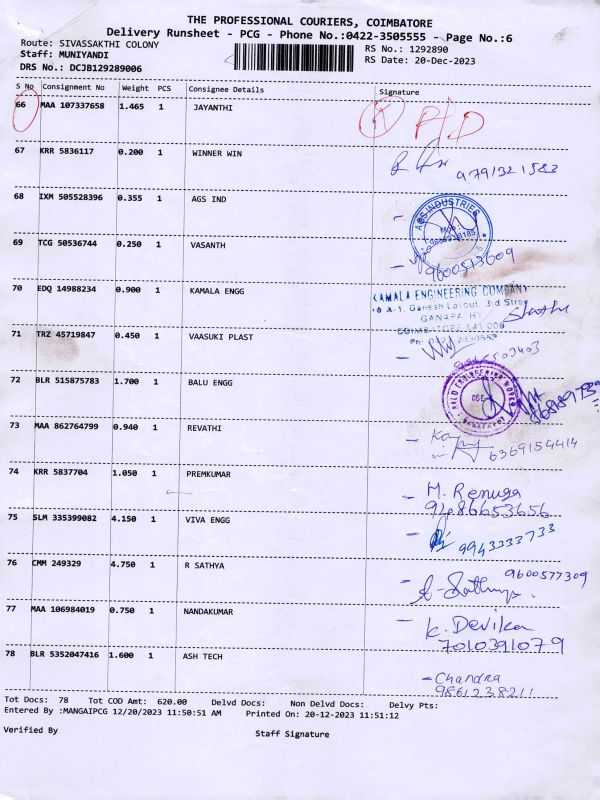 THE PROFESSIONAL COURIERS, COIMBATORE
Delivery Runsheet - PCG - Phone No.:0422-3505555 - Page No.:6
Route: SIVASSAKTHI COLONY RS No.: 1292890
Staff: MUNIYANDI RS Date: 20-Dec-2023
DRS No.: DCJB129289006
S No Consignment No Weight PCS Consignee Details Signature
66 MAA 107337658 1.465 1 JAYANTHI
67 KRR 5836117 0.200 1 WINNER WIN
9791321582
68 IXM 505528396 0.355 1 AGS IND
AGS INDUSTRIES
69 TCG 50536744 0.250 1 VASANTH
9600573609
70 EDQ 14988234 0.900 1 KAMALA ENGG
KAMALA ENGINEERING COMPANY
GANAPATHY
71 TRZ 45719847 0.450 1 VAASUKI PLAST
72 BLR 515875783 1.700 1 BALU ENGG
73 MAA 862764799 0.940 1 REVATHI
6369154414
74 KRR 5837704 1.050 1 PREMKUMAR
M. Renuga
9486653656
75 SLM 335399082 4.150 1 VIVA ENGG
9943333733
76 CMM 249329 4.750 1 R SATHYA
9600577309
77 MAA 106984019 0.750 1 NANDAKUMAR
K. Devika
7010391079
78 BLR 5352047416 1.600 1 ASH TECH
Chandra
9861238211
Tot Docs: 78 Tot COD Amt: 620.00 Delvd Docs: Non Delvd Docs: Delvy Pts:
Entered By :MANGAIPCG 12/20/2023 11:50:51 AM Printed On: 20-12-2023 11:51:12
Verified By Staff Signature